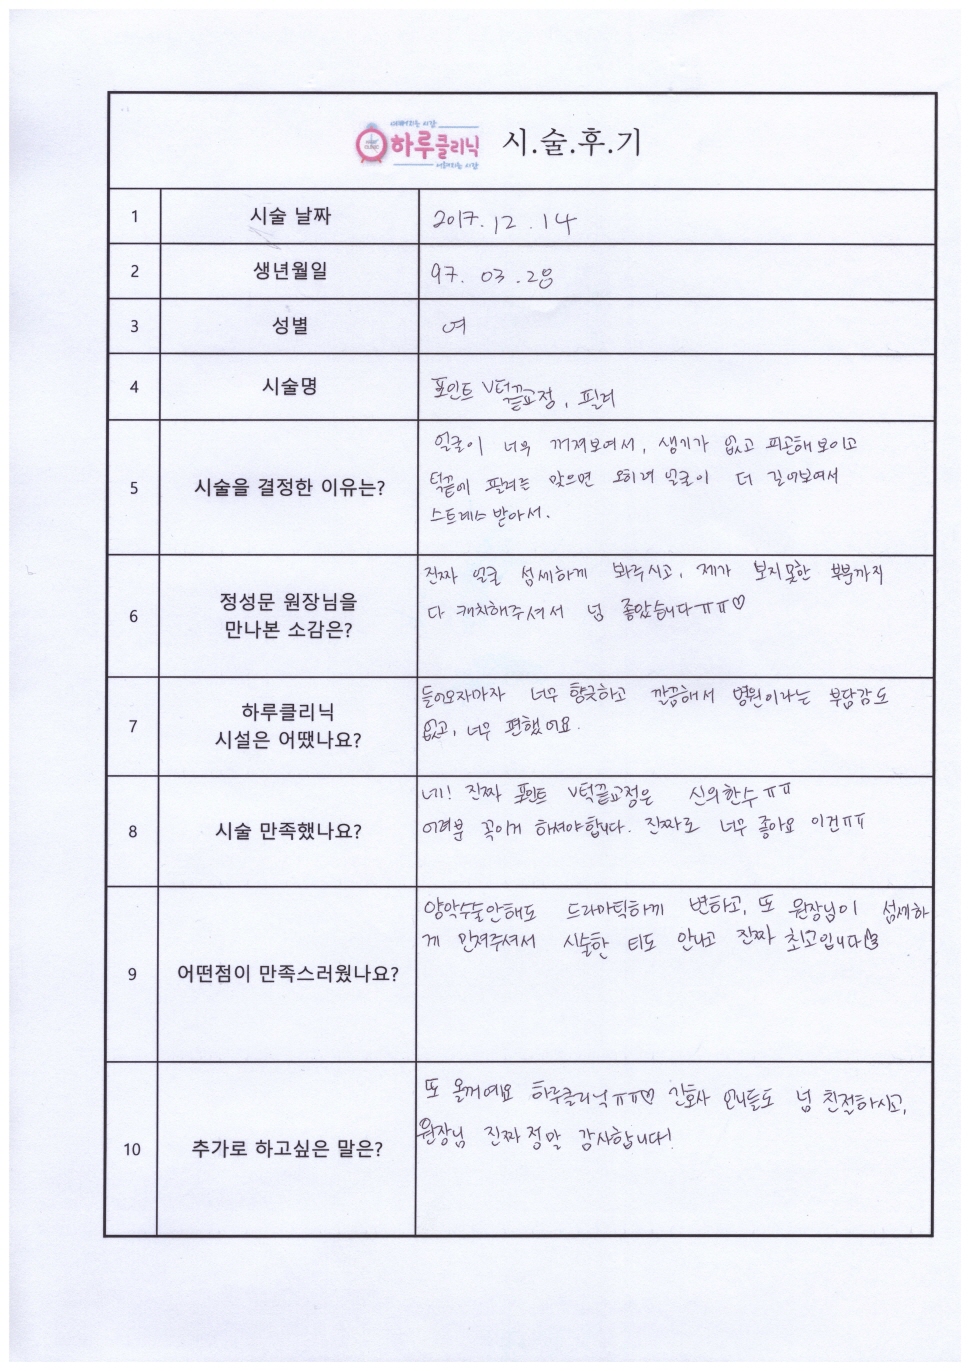 예뻐지는 시간
하루클리닉
어려지는 시간
시.술.후.기
1 시술 날짜 2017. 12. 14
2 생년월일 97. 03. 28
3 성별 여
4 시술명 포인트 V턱끝교정, 필러
5 시술을 결정한 이유는?
얼굴이 너무 꺼져보여서, 생기가 없고 피곤해보이고
턱끝에 필러를 맞으면 오히려 얼굴이 더 길어보여서
스트레스 받아서.
6 정성문 원장님을
만나본 소감은?
진짜 얼굴 섬세하게 봐주시고, 제가 보지못한 부분까지
다 캐치해주셔서 넘 좋았습니다ㅠㅠ♡
7 하루클리닉
시설은 어땠나요?
들어오자마자 너무 향긋하고 깔끔해서 병원이라는 부담감도
없고, 너무 편했어요.
8 시술 만족했나요?
네! 진짜 포인트 V턱끝교정은 신의한수ㅠㅠ
여러분 꼭이거 하셔야합니다. 진짜로 너무 좋아요 이건ㅠㅠ
9 어떤점이 만족스러웠나요?
양악수술안해도 드라마틱하게 변하고, 또 원장님이 섬세하
게 만져주셔서 시술한 티도 안나고 진짜 최고입니다
10 추가로 하고싶은 말은?
또 올꺼예요 하루클리닉ㅠㅠ♡ 간호사 언니들도 넘 친절하시고,
원장님 진짜 정말 감사합니다!